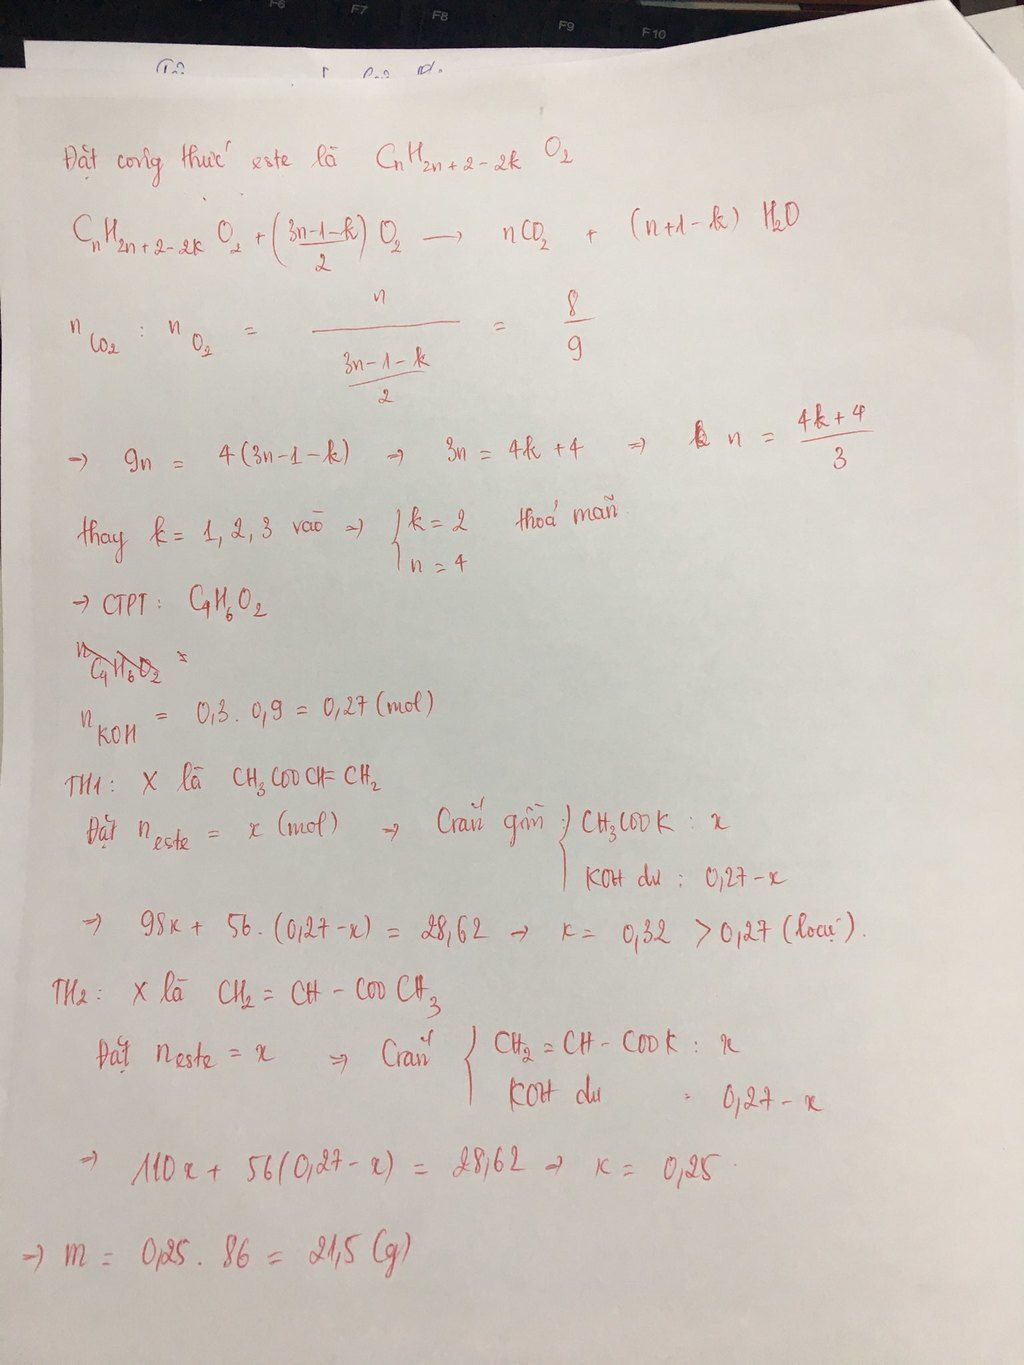 F6 F7 F8 F9 F10
Đặt công thức este là CnH2n+2-2k O2
CnH2n+2-2k O2 + (3n-1-k)/2 O2 → nCO2 + (n+1-k) H2O
nCO2 : nO2 = n / ((3n-1-k)/2) = 8/9
⇒ 9n = 4(3n-1-k) ⇒ 3n = 4k+4 ⇒ n = (4k+4)/3
thay k = 1, 2, 3 vào ⇒ { k = 2 thoả mãn
n = 4
⇒ CTPT: C4H6O2
nC4H6O2 =
nKOH = 0,3 . 0,9 = 0,27 (mol)
TH1: X là CH3COOCH=CH2
Đặt neste = x (mol) ⇒ Crắn gồm { CH3COOK : x
KOH dư : 0,27-x
⇒ 98x + 56.(0,27-x) = 28,62 ⇒ x = 0,32 > 0,27 (loại).
TH2: X là CH2 = CH - COOCH3
Đặt neste = x ⇒ Crắn { CH2 = CH - COOK : x
KOH dư : 0,27-x
⇒ 110x + 56(0,27-x) = 28,62 ⇒ x = 0,25
⇒ m = 0,25 . 86 = 21,5 (g)